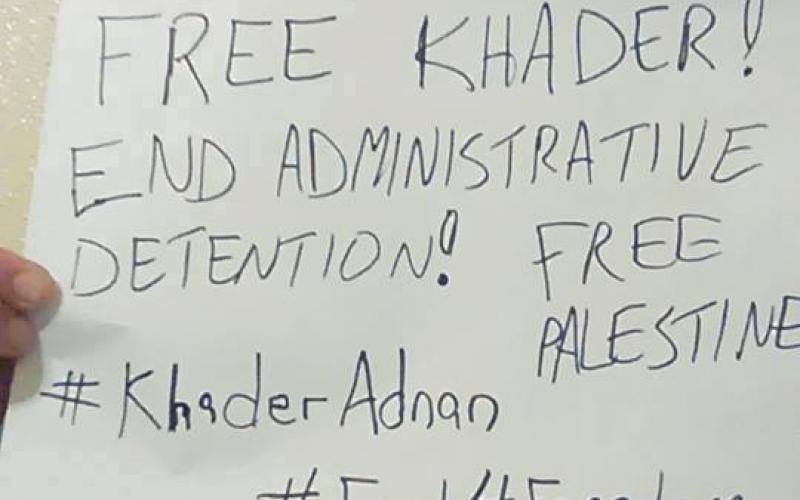 FREE KHADER!
END ADMINISTRATIVE
DETENTION! FREE
PALESTINE
#KhaderAdnan